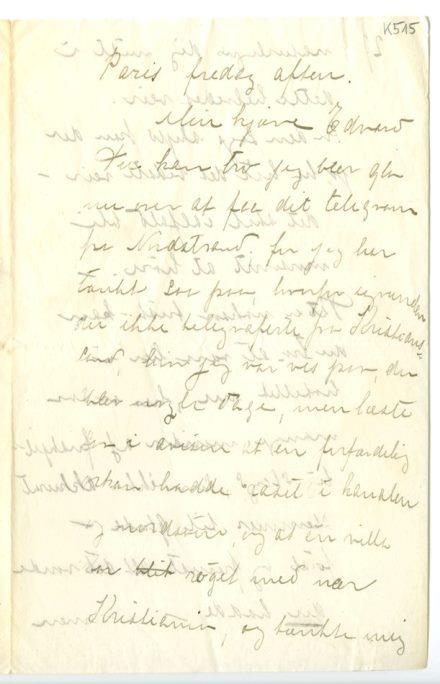 K515
Paris fredag aften.
Min kjære Edvard
Du kan tro jeg blev gla
nu over at faa dit telegram
fra Nordstrand for jeg har
tænkt saa paa, hvorfor
ikke telegraferte fra Kristians=
sand, hvor jeg var vis paa, du
blev nogle Dage, men læste
i avisen at en forfærdelig
orkan hadde raset i kanalen
og nordover og at en villa
var blit røget med nær
Kristiania, og tænkte mig